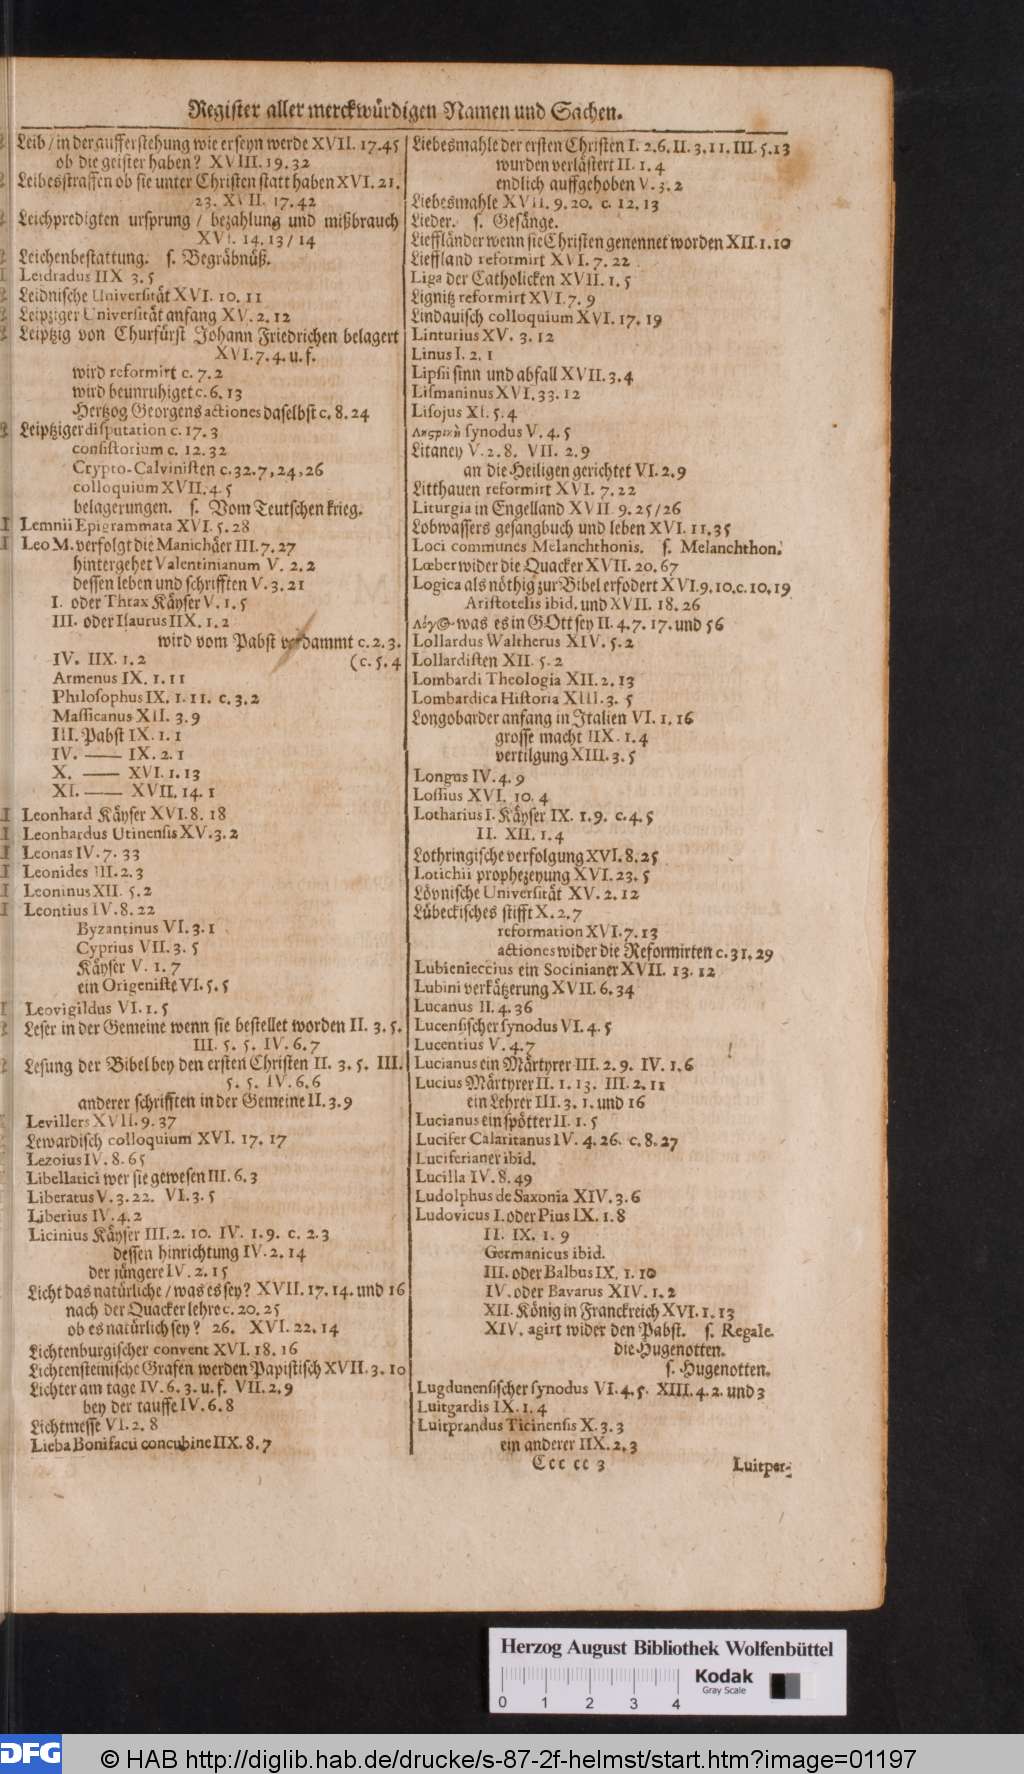 Register aller merckwürdigen Namen und Sachen.
Leib / in der aufferstehung wie er seyn werde XVII. 17.45
ob die geister haben? XVIII. 19.32
Leibesstraffen ob sie unter Christen statt haben XVI. 21.
23. XVII. 17.42
Leichpredigten ursprung / bezahlung und mißbrauch
XVI. 14.13/14
Leichenbestattung. s. Begräbnüß.
Leidradus IIX 3.5
Leidnische Universität XVI. 10.11
Leipziger Universität anfang XV. 2.12
Leipzig von Churfürst Johann Friedrichen belagert
XVI. 7.4. u. f.
wird reformirt c. 7.2
wird beunruhiget c. 6.13
Hertzog Georgens actiones daselbst c. 8.24
Leipziger disputation c. 17.3
consistorium c. 12.32
Crypto-Calvinisten c. 32.7, 24, 26
colloquium XVII. 4.5
belagerungen. s. Vom Teutschen krieg.
Lemnii Epigrammata XVI. 5.28
Leo M. verfolgt die Manichäer III. 7.27
hintergehet Valentinianum V. 2.2
dessen leben und schrifften V. 3.21
I. oder Thrax Käyser V. 1.5
III. oder Isaurus IIX. 1.2
wird vom Pabst verdammt c. 2.3.
IV. IIX. 1.2 (c. 5.4
Armenus IX. 1.11
Philosophus IX. 1.11. c. 3.2
Massicanus XII. 3.9
III. Pabst IX. 1.1
IV. —— IX. 2.1
X. —— XVI. 1.13
XI. —— XVII. 14.1
Leonhard Käyser XVI. 8.18
Leonhardus Utinensis XV. 3.2
Leonas IV. 7.33
Leonides III. 2.3
Leoninus XII. 5.2
Leontius IV. 8.22
Byzantinus VI. 3.1
Cyprius VII. 3.5
Käyser V. 1.7
ein Origeniste VI. 5.5
Leovigildus VI. 1.5
Leser in der Gemeine wenn sie bestellet worden II. 3.5.
III. 5.5. IV. 6.7
Lesung der Bibel bey den ersten Christen II. 3.5. III.
5.5. IV. 6.6
anderer schrifften in der Gemeine II. 3.9
Levillers XVII. 9.37
Lewardisch colloquium XVI. 17.17
Lezoius IV. 8.65
Libellatici wer sie gewesen III. 6.3
Liberatus V. 3.22. VI. 3.5
Liberius IV. 4.2
Licinius Käyser III. 2.10. IV. 1.9. c. 2.3
dessen hinrichtung IV. 2.14
der jüngere IV. 2.15
Licht das natürliche / was es sey? XVII. 17.14. und 16
nach der Quacker lehre c. 20.25
ob es natürlich sey? 26. XVI. 22.14
Lichtenburgischer convent XVI. 18.16
Lichtensteinische Grafen werden Papistisch XVII. 3.10
Lichter am tage IV. 6.3. u. f. VII. 2.9
bey der tauffe IV. 6.8
Lichtmesse VI. 2.8
Lieba Bonifacii concubine IIX. 8.7
Liebesmahle der ersten Christen I. 2.6. II. 3.11. III. 5.13
wurden verlästert II. 1.4
endlich auffgehoben V. 3.2
Liebesmahle XVII. 9.20. c. 12.13
Lieder. s. Gesänge.
Lieffländer wenn sie Christen genennet worden XII. 1.10
Lieffland reformirt XVI. 7.22
Liga der Catholicken XVII. 1.5
Lignitz reformirt XVI. 7.9
Lindauisch colloquium XVI. 17.19
Linturius XV. 3.12
Linus I. 2.1
Lipsii sinn und abfall XVII. 3.4
Lismaninus XVI. 33.12
Lisojus XI. 5.4
Ληςρικὴ synodus V. 4.5
Litaney V. 2.8. VII. 2.9
an die Heiligen gerichtet VI. 2.9
Litthauen reformirt XVI. 7.22
Liturgia in Engelland XVII 9.25/26
Lobwassers gesangbuch und leben XVI. 11.35
Loci communes Melanchthonis. s. Melanchthon.
Lœber wider die Quacker XVII. 20.67
Logica als nöthig zur Bibel erfodert XVI. 9.10. c. 10.19
Aristotelis ibid. und XVII. 18.26
Λόγ@ was es in GOtt sey II. 4.7. 17. und 56
Lollardus Waltherus XIV. 5.2
Lollardisten XII. 5.2
Lombardi Theologia XII. 2.13
Lombardica Historia XIII. 3.5
Longobarder anfang in Italien VI. 1.16
grosse macht IIX. 1.4
vertilgung XIII. 3.5
Longus IV. 4.9
Lossius XVI. 10.4
Lotharius I. Käyser IX. 1.9. c. 4.5
II. XII. 1.4
Lothringische verfolgung XVI. 8.25
Lotichii prophezeyung XVI. 23.5
Lövnische Universität XV. 2.12
Lübeckisches stifft X. 2.7
reformation XVI. 7.13
actiones wider die Reformirten c. 31.29
Lubienieccius ein Socinianer XVII. 13.12
Lubini verkätzerung XVII. 6.34
Lucanus II. 4.36
Lucensischer synodus VI. 4.5
Lucentius V. 4.7
Lucianus ein Märtyrer III. 2.9. IV. 1.6
Lucius Märtyrer II. 1.13. III. 2.11
ein Lehrer III. 3.1. und 16
Lucianus ein spötter II. 1.5
Lucifer Calaritanus IV. 4.26. c. 8.27
Luciferianer ibid.
Lucilla IV. 8.49
Ludolphus de Saxonia XIV. 3.6
Ludovicus I. oder Pius IX. 1.8
II. IX. 1.9
Germanicus ibid.
III. oder Balbus IX. 1.10
IV. oder Bavarus XIV. 1.2
XII. König in Franckreich XVI. 1.13
XIV. agirt wider den Pabst. s. Regale.
die Hugenotten.
s. Hugenotten.
Lugdunensischer synodus VI. 4.5. XIII. 4.2. und 3
Luitgardis IX. 1.4
Luitprandus Ticinensis X. 3.3
ein anderer IIX. 2.3
Ccc cc 3
Luitper-
Herzog August Bibliothek Wolfenbüttel
Kodak
Gray Scale
0 1 2 3 4
DFG © HAB http://diglib.hab.de/drucke/s-87-2f-helmst/start.htm?image=01197